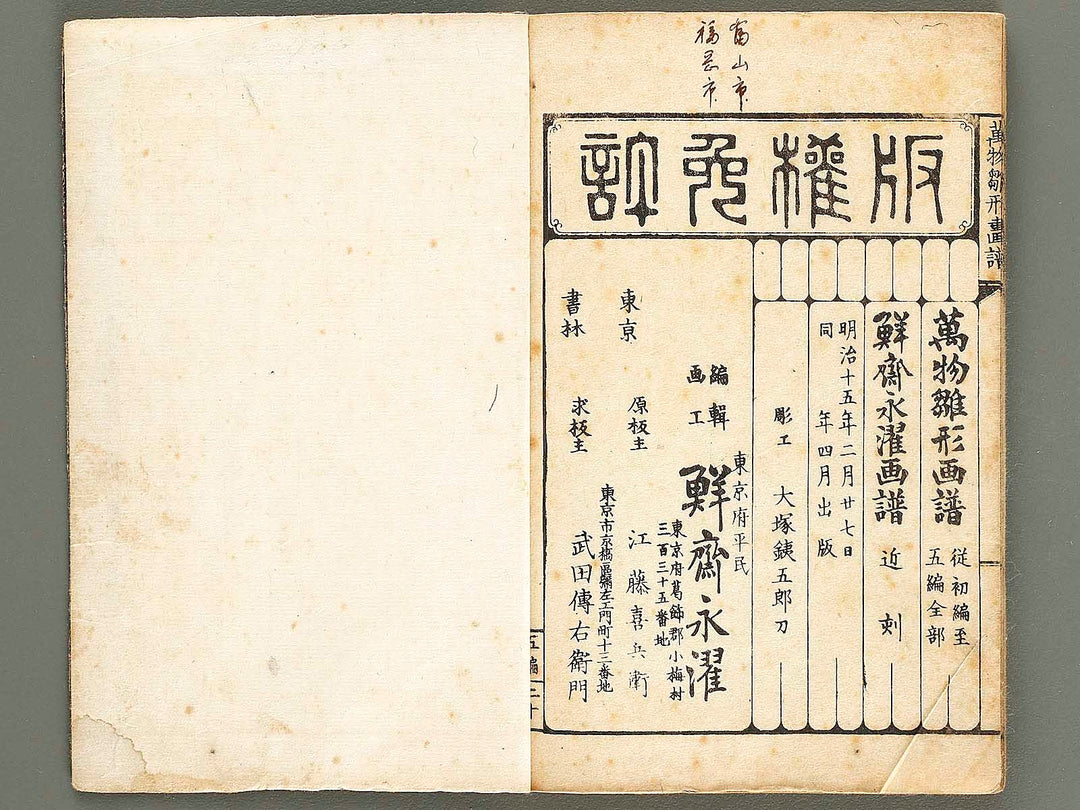 富山市
福岡市
版權免許
萬物雛形畫譜
萬物雛形画譜
従初編至
五編全部
鮮齋永濯画譜
近刻
明治十五年二月廿七日
同 年四月出版
彫工 大塚銕五郎刀
東京府平民
編輯
画工
鮮齋永濯
東京府葛飾郡小梅村
三百三十五番地
東京
原板主
江藤喜兵衛
書林
求板主
東京市京橋區彌左工門町十三番地
武田傳右衛門
五編
二十